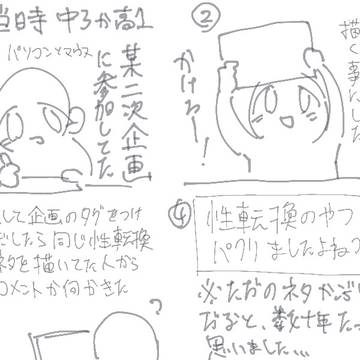 当時 中3か高1
パソコンとマウス
某二次企画
に参加してた
②
描く事にした
かけたー!
して企画のタグをつけ
だしたら同じ性転換
ネタを描いてた人から
コメントか何かきた
④
性転換のやつ
パクりましたよね?
※ただのネタかぶり
だろと、数十年たっ
思いました…
?